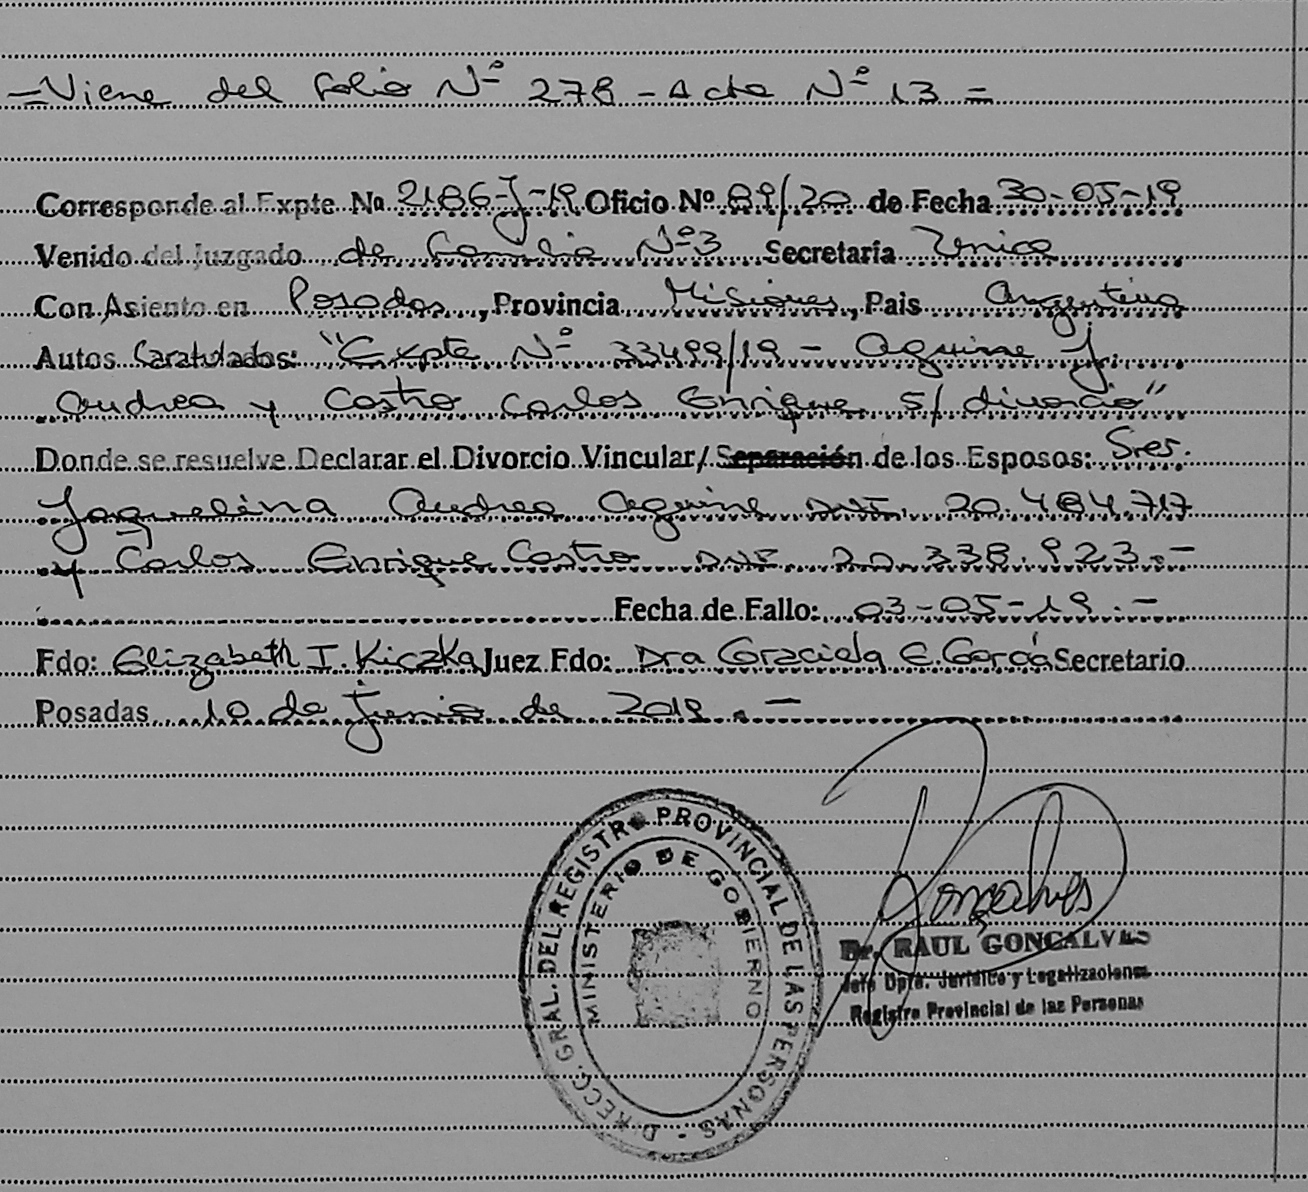 -Viene del folio Nº 278 - Acta Nº 13 =
Corresponde al Expte Nº 2186-J-19 Oficio Nº 89/20 de Fecha 30-05-19
Venido del Juzgado de Familia Nº 3 Secretaría Unica
Con Asiento en Posadas, Provincia Misiones, Pais Argentina
Autos Caratulados: "Expte Nº 33499/19 - Aguirre J.
Andrea y Castro Carlos Enrique s/ divorcio"
Donde se resuelve Declarar el Divorcio Vincular/ Separación de los Esposos: Sres.
Jaquelina Andrea Aguirre DNI. 20.484.717
y Carlos Enrique Castro DNI 20.338.923.-
Fecha de Fallo: 03-05-19.-
Fdo: Elizabeth I. Kiczka Juez Fdo: Dra Graciela E. García Secretario
Posadas 10 de Junio de 2019.-
DIRECC. GRAL. DEL REGISTRO PROVINCIAL DE LAS PERSONAS -
MINISTERIO DE GOBIERNO
Gonçalves
Dr. RAUL GONCALVES
Jefe Dpto. Jurídico y Legalizaciones
Registro Provincial de las Personas